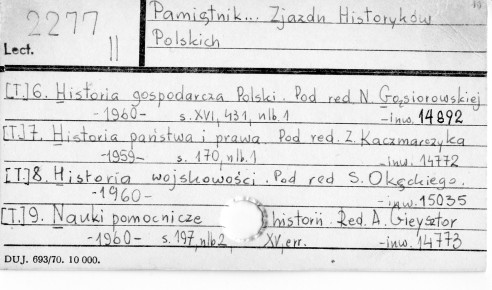 2277
Lect. II
Pamiętnik... Zjazdu Historyków
Polskich
[T.]6. Historia gospodarcza Polski. Pod red. N. Gąsiorowskiej
-1960- s. XVI, 431, nlb. 1 -inw. 14892
[T.]7. Historia państwa i prawa. Pod red. Z. Kaczmarczyka
-1959- s. 170, nlb. 1 -inw. 14772
[T.]8. Historia wojskowości. Pod red S. Okęckiego.
-1960- -inw. 15035
[T.]9. Nauki pomocnicze historii. Red. A. Gieysztor
-1960- s. 197, nlb. 2 XV, err. -inw. 14773
DUJ. 693/70. 10 000.